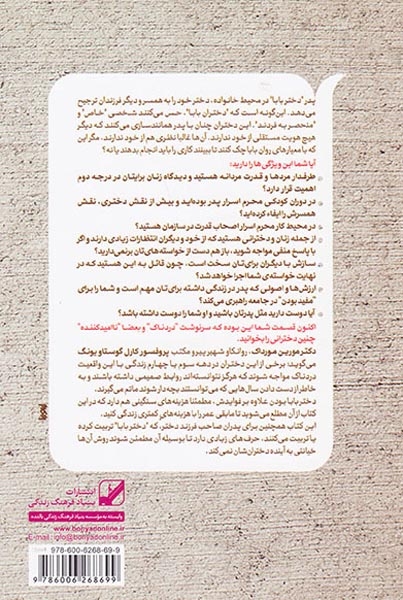 پدر "دختر بابا" در محیط خانواده، دختر خود را به همسر و دیگر فرزندان ترجیح
می‌دهد. این‌گونه است که "دختران بابا"، حس می‌کنند شخصی "خاص" و
"منحصر به فردند". این دختران چنان با پدر همانندسازی می‌کنند که دیگر
هیچ هویت مستقلی از خود ندارند. آن‌ها غالبا نظری هم از خود ندارند، مگر این
که با معیارهای روان بابا چک کنند تا ببینند کاری را باید انجام بدهند یا نه؟
آیا شما این ویژگی‌ها را دارید:
طرفدار مردها و قدرت مردانه هستید و دیدگاه زنان برایتان در درجه دوم
اهمیت قرار دارد؟
در دوران کودکی محرم اسرار پدر بوده‌اید و بیش از نقش دختری، نقش
همسرش را ایفا کرده‌اید؟
در محیط کار محرم اسرار اصحاب قدرت در سازمان هستید؟
از جمله زنان و دخترانی هستید که از خود و دیگران انتظارات زیادی دارند و اگر
با پاسخ منفی مواجه شوید، باز هم دست از خواسته‌های‌تان برنمی‌دارید؟
سازش با دیگران برای‌تان سخت است. چون قائل به این هستید که در
نهایت خواسته‌ی شما اجرا خواهد شد؟
ارزش‌ها و اصولی که پدر در زندگی داشته برای‌تان مهم است و شما را برای
"مفید بودن" در جامعه راهبری می‌کند؟
آیا دوست دارید مثل پدرتان باشید و او شما را دوست داشته باشد؟
اکنون قسمت شما این بوده که سرنوشت "دردناک" و بعضا "ناامیدکننده"
چنین دخترانی را بخوانید.
دکتر مورین مورداک، روانکاو شهیر پیرو مکتب پروفسور کارل گوستاو یونگ
می‌گوید: برخی از این دختران در دهه سوم یا چهارم زندگی با این واقعیت
دردناک مواجه شوند که هرگز نتوانسته‌اند روابط صمیمی داشته باشند و به
خاطر از دست دادن سال‌هایی که می‌توانستند بچه‌دار شوند، ماتم می‌گیرند.
دختر بابا بودن علاوه بر فوایدش، مطمئنا هزینه‌های سنگینی هم دارد که در این
کتاب از آن مطلع می‌شوید تا مابقی عمر را با هزینه‌های کمتری زندگی کنید.
این کتاب همچنین برای پدران صاحب فرزند دختر، که "دختر بابا" تربیت کرده
یا تربیت می‌کنند، حرف‌های زیادی دارد تا بوسیله آن مطمئن شوند روش آن‌ها
خیانتی به آینده دختران‌شان نمی‌کند.
انتشارات
بنیاد فرهنگ زندگی
وابسته به موسسه بنیاد فرهنگ زندگی بالنده
www.bonyadonline.ir
E-mail: info@bonyadonline.ir
978-600-6268-69-9
9 786006 268699